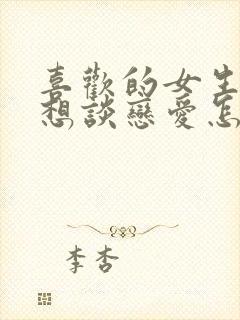 喜歡的女生
想談戀愛怎
李杏